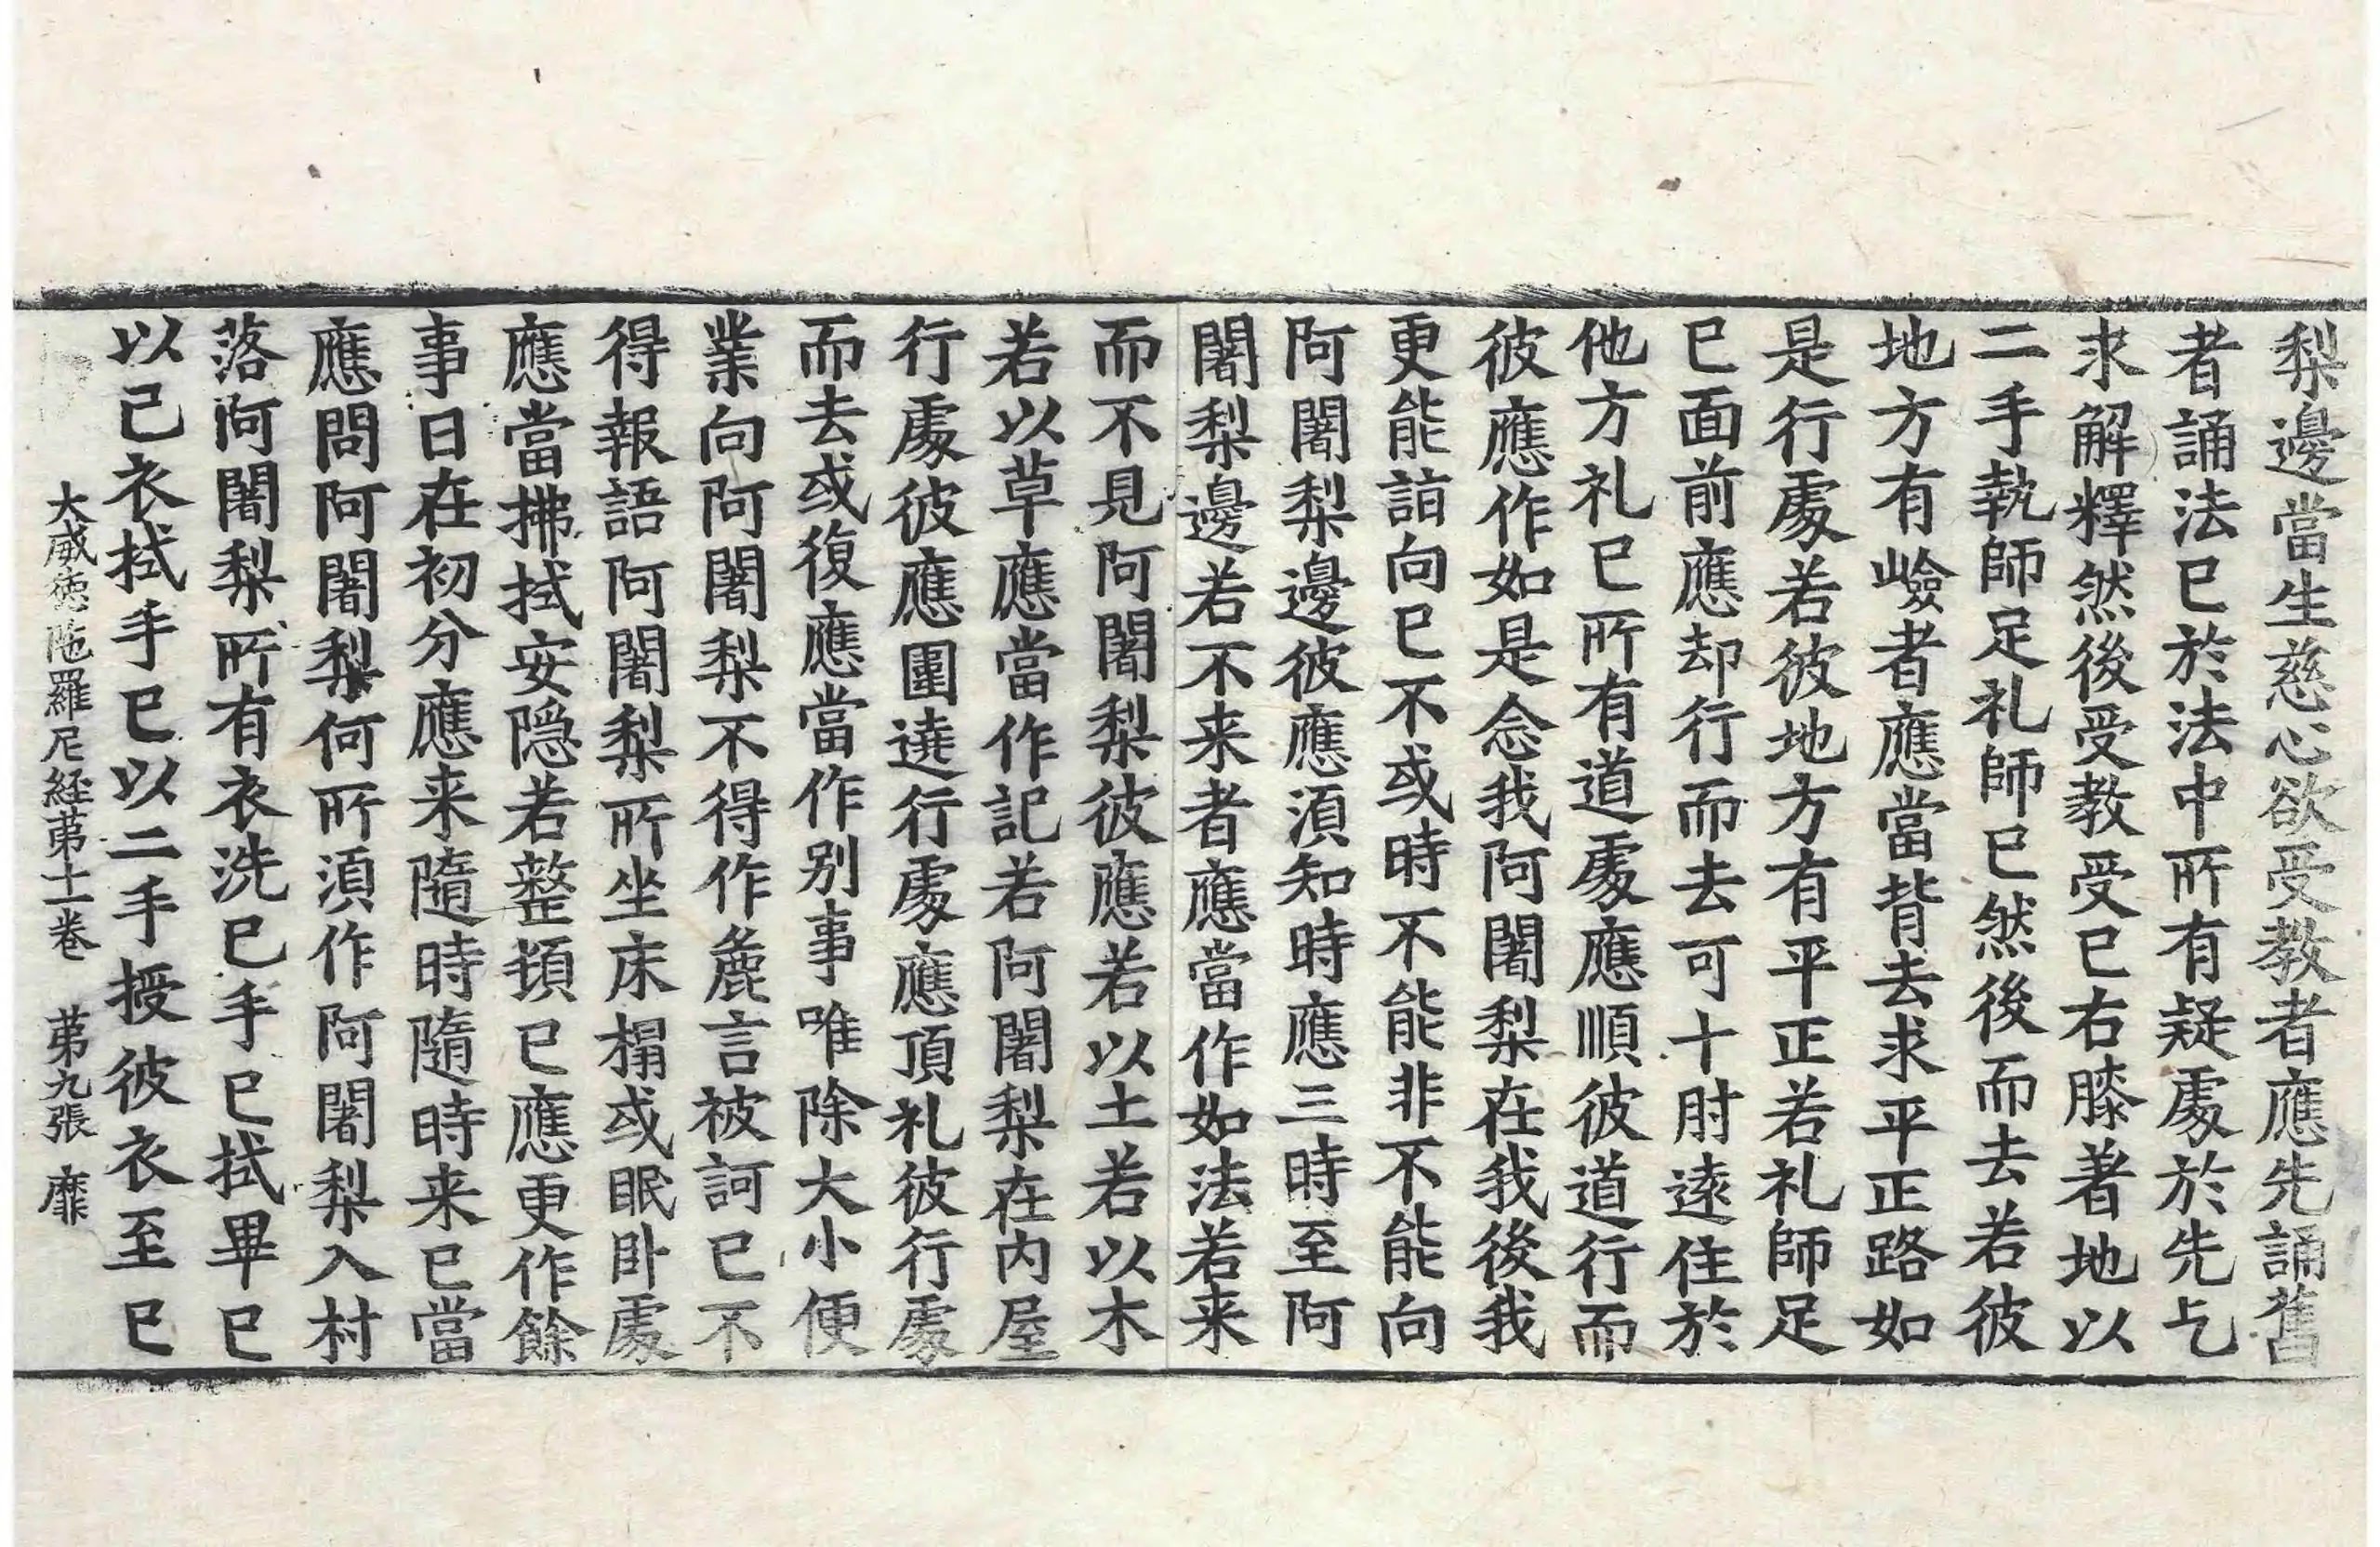 梨邊當生慈心欲受教者應先誦舊
者誦法已於法中所有疑處於先乞
求解釋然後受教受已右膝著地以
二手執師足礼師已然後而去若彼
地方有嶮者應當背去求平正路如
是行處若彼地方有平正若礼師足
已面前應却行而去可十肘遠住於
他方礼已所有道處應順彼道行而
彼應作如是念我阿闍梨在我後我
更能詣向已不或時不能非不能向
阿闍梨邊彼應湏知時應三時至阿
闍梨邊若不来者應當作如法若来
而不見阿闍梨彼應若以土若以木
若以草應當作記若阿闍梨在内屋
行處彼應圍遶行處應頂礼彼行處
而去或復應當作别事唯除大小便
業向阿闍梨不得作麁言被訶已不
得報語阿闍梨所坐床榻或眠卧處
應當拂拭安隠若整頓已應更作餘
事日在初分應来隨時隨時来已當
應問阿闍梨何所湏作阿闍梨入村
落阿闍梨所有衣洗已手已拭畢已
以己衣拭手已以二手授彼衣至已
大威徳陁羅尼経苐十二卷　苐九張　靡